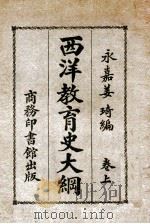 永嘉姜琦編　卷上
西洋教育史大綱
商務印書館出版